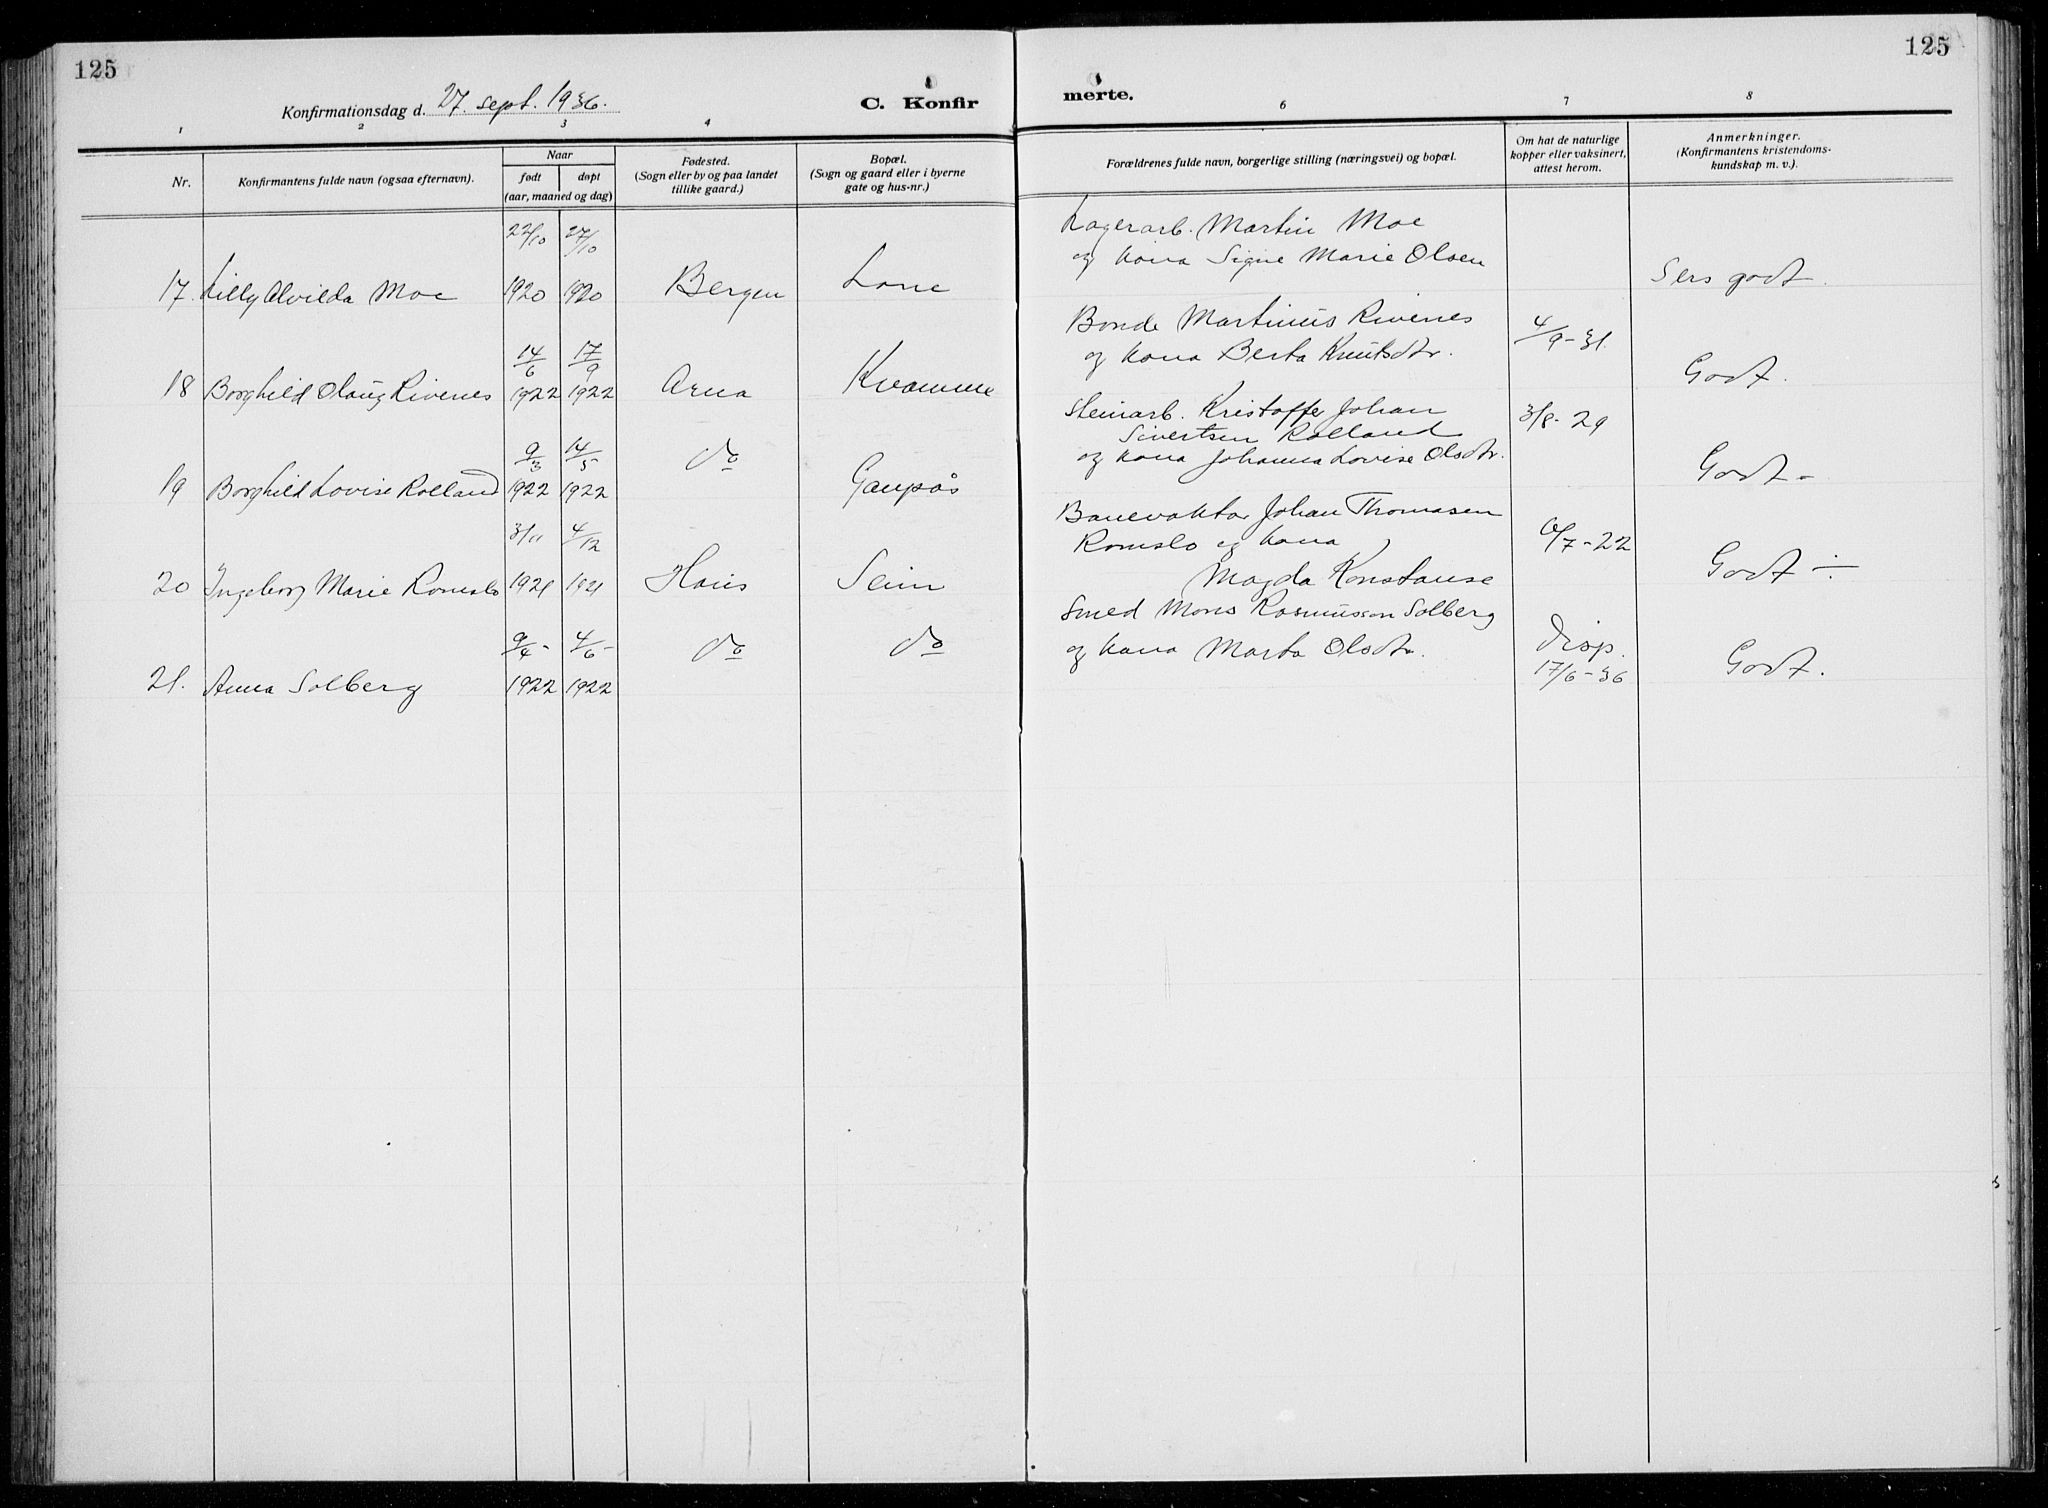 125
125
Konfirmationsdag d. 27. sept. 1936.
C. Konfir
merte.
1 2 3 4 6 7 8
Nr.
Konfirmantens fulde navn (ogsaa efternavn).
Naar
født
døpt
(aar, maaned og dag)
Fødested.
(Sogn eller by og paa landet
tillike gaard.)
Bopæl.
(Sogn og gaard eller i byerne
gate og hus-nr.)
Forældrenes fulde navn, borgerlige stilling (næringsvei) og bopæl.
Om hat de naturlige
kopper eller vaksinert,
attest herom.
Anmerkninger.
(Konfirmantens kristendoms-
kundskap m. v.).
22/10 27/10 Lagerarb. Martin Moe
og kona Signe Marie Olsen
17. Lilly Alvilda Moe 1920 1920 Bergen Lone Sers godt.
Bonde Martinus Rivenes 4/9-31
14/6 17/9 og kona Berta Knutsdtr.
18 Borghild Olaug Rivenes 1922 1922 Arna Kvamme Godt.
Steinarb. Kristoffer Johan 3/8-29
Sivertsen Rolland
9/3 14/5 do og kona Johanna Lovise Olsdtr.
19 Borghild Lovise Rolland 1922 1922 Gaupås Godt-
Banevaktar Johan Thomasen
3/11 4/12 Romslo og kona /7-22
20 Ingeborg Marie Romslo 1921 1921 Haus Seim Magda Konstanse Godt ÷
Smed Mons Rasmusson Solberg
9/4- 4/6- do do og kona Marta Olsdtr. Disp.
21. Anna Solberg 1922 1922 17/6-36 Godt.